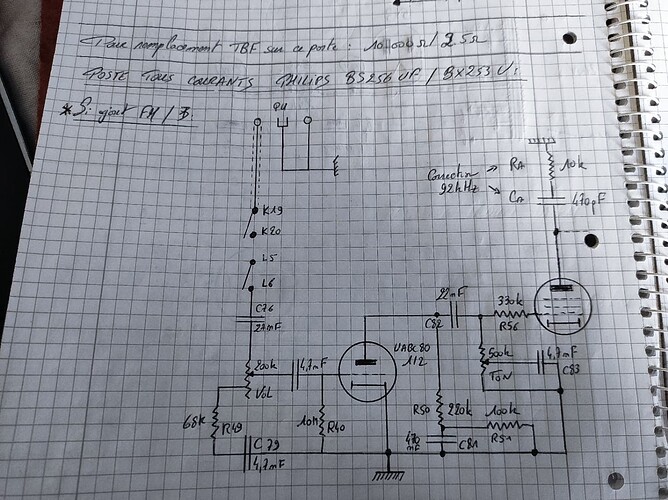 Pour remplacement TBF sur ce poste : 10.000Ω / 2.5Ω
POSTE TOUS COURANTS PHILIPS BS256 UF / BX253 U:
* Si ajout FM /
PU
Correction
92kHz
RA
10k
CA
470pF
K19
K20
L5
L6
C76
27nF
22nF
C82
330k
R56
200k
VOL
4,7nF
UABC80
112
500k
TON
4,7nF
C83
68K
R49
10M
R40
R50
220k
100k
R51
470
nF
C81
C79
4,7nF